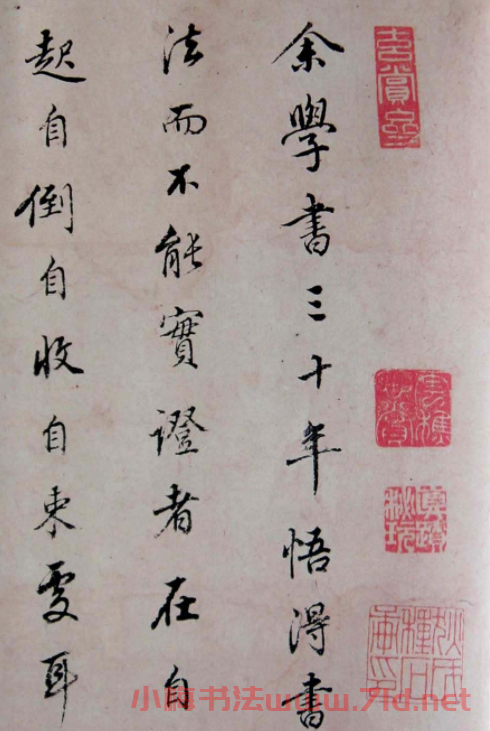 余學書三十年悟得書
法而不能實證者在自
起自倒自收自束處耳
小楷书法www.7ld.net